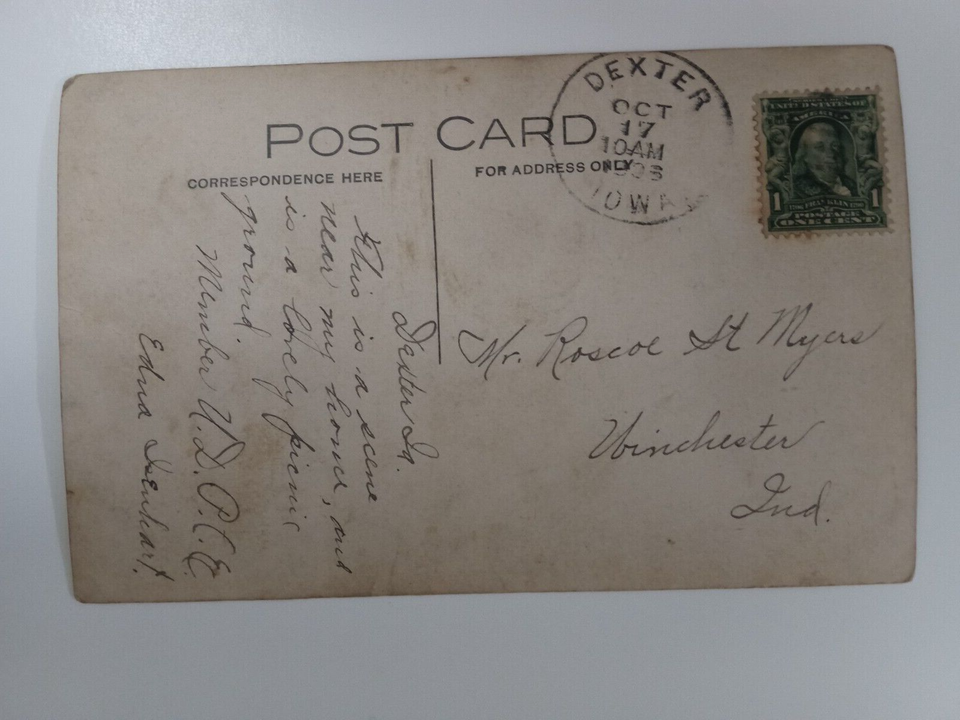 POST CARD
CORRESPONDENCE HERE
FOR ADDRESS ONLY
DEXTER
OCT
17
10AM
IOWA
UNITED STATES OF
AMERICA
1 FRANKLIN 1
POSTAGE
ONE CENT
Dexter Ia.
This is a scene
near my home, and
is a lovely picnic
ground.
Member U.D.P.C.E.
Edna
Mr. Roscoe St Myers
Winchester
Ind.